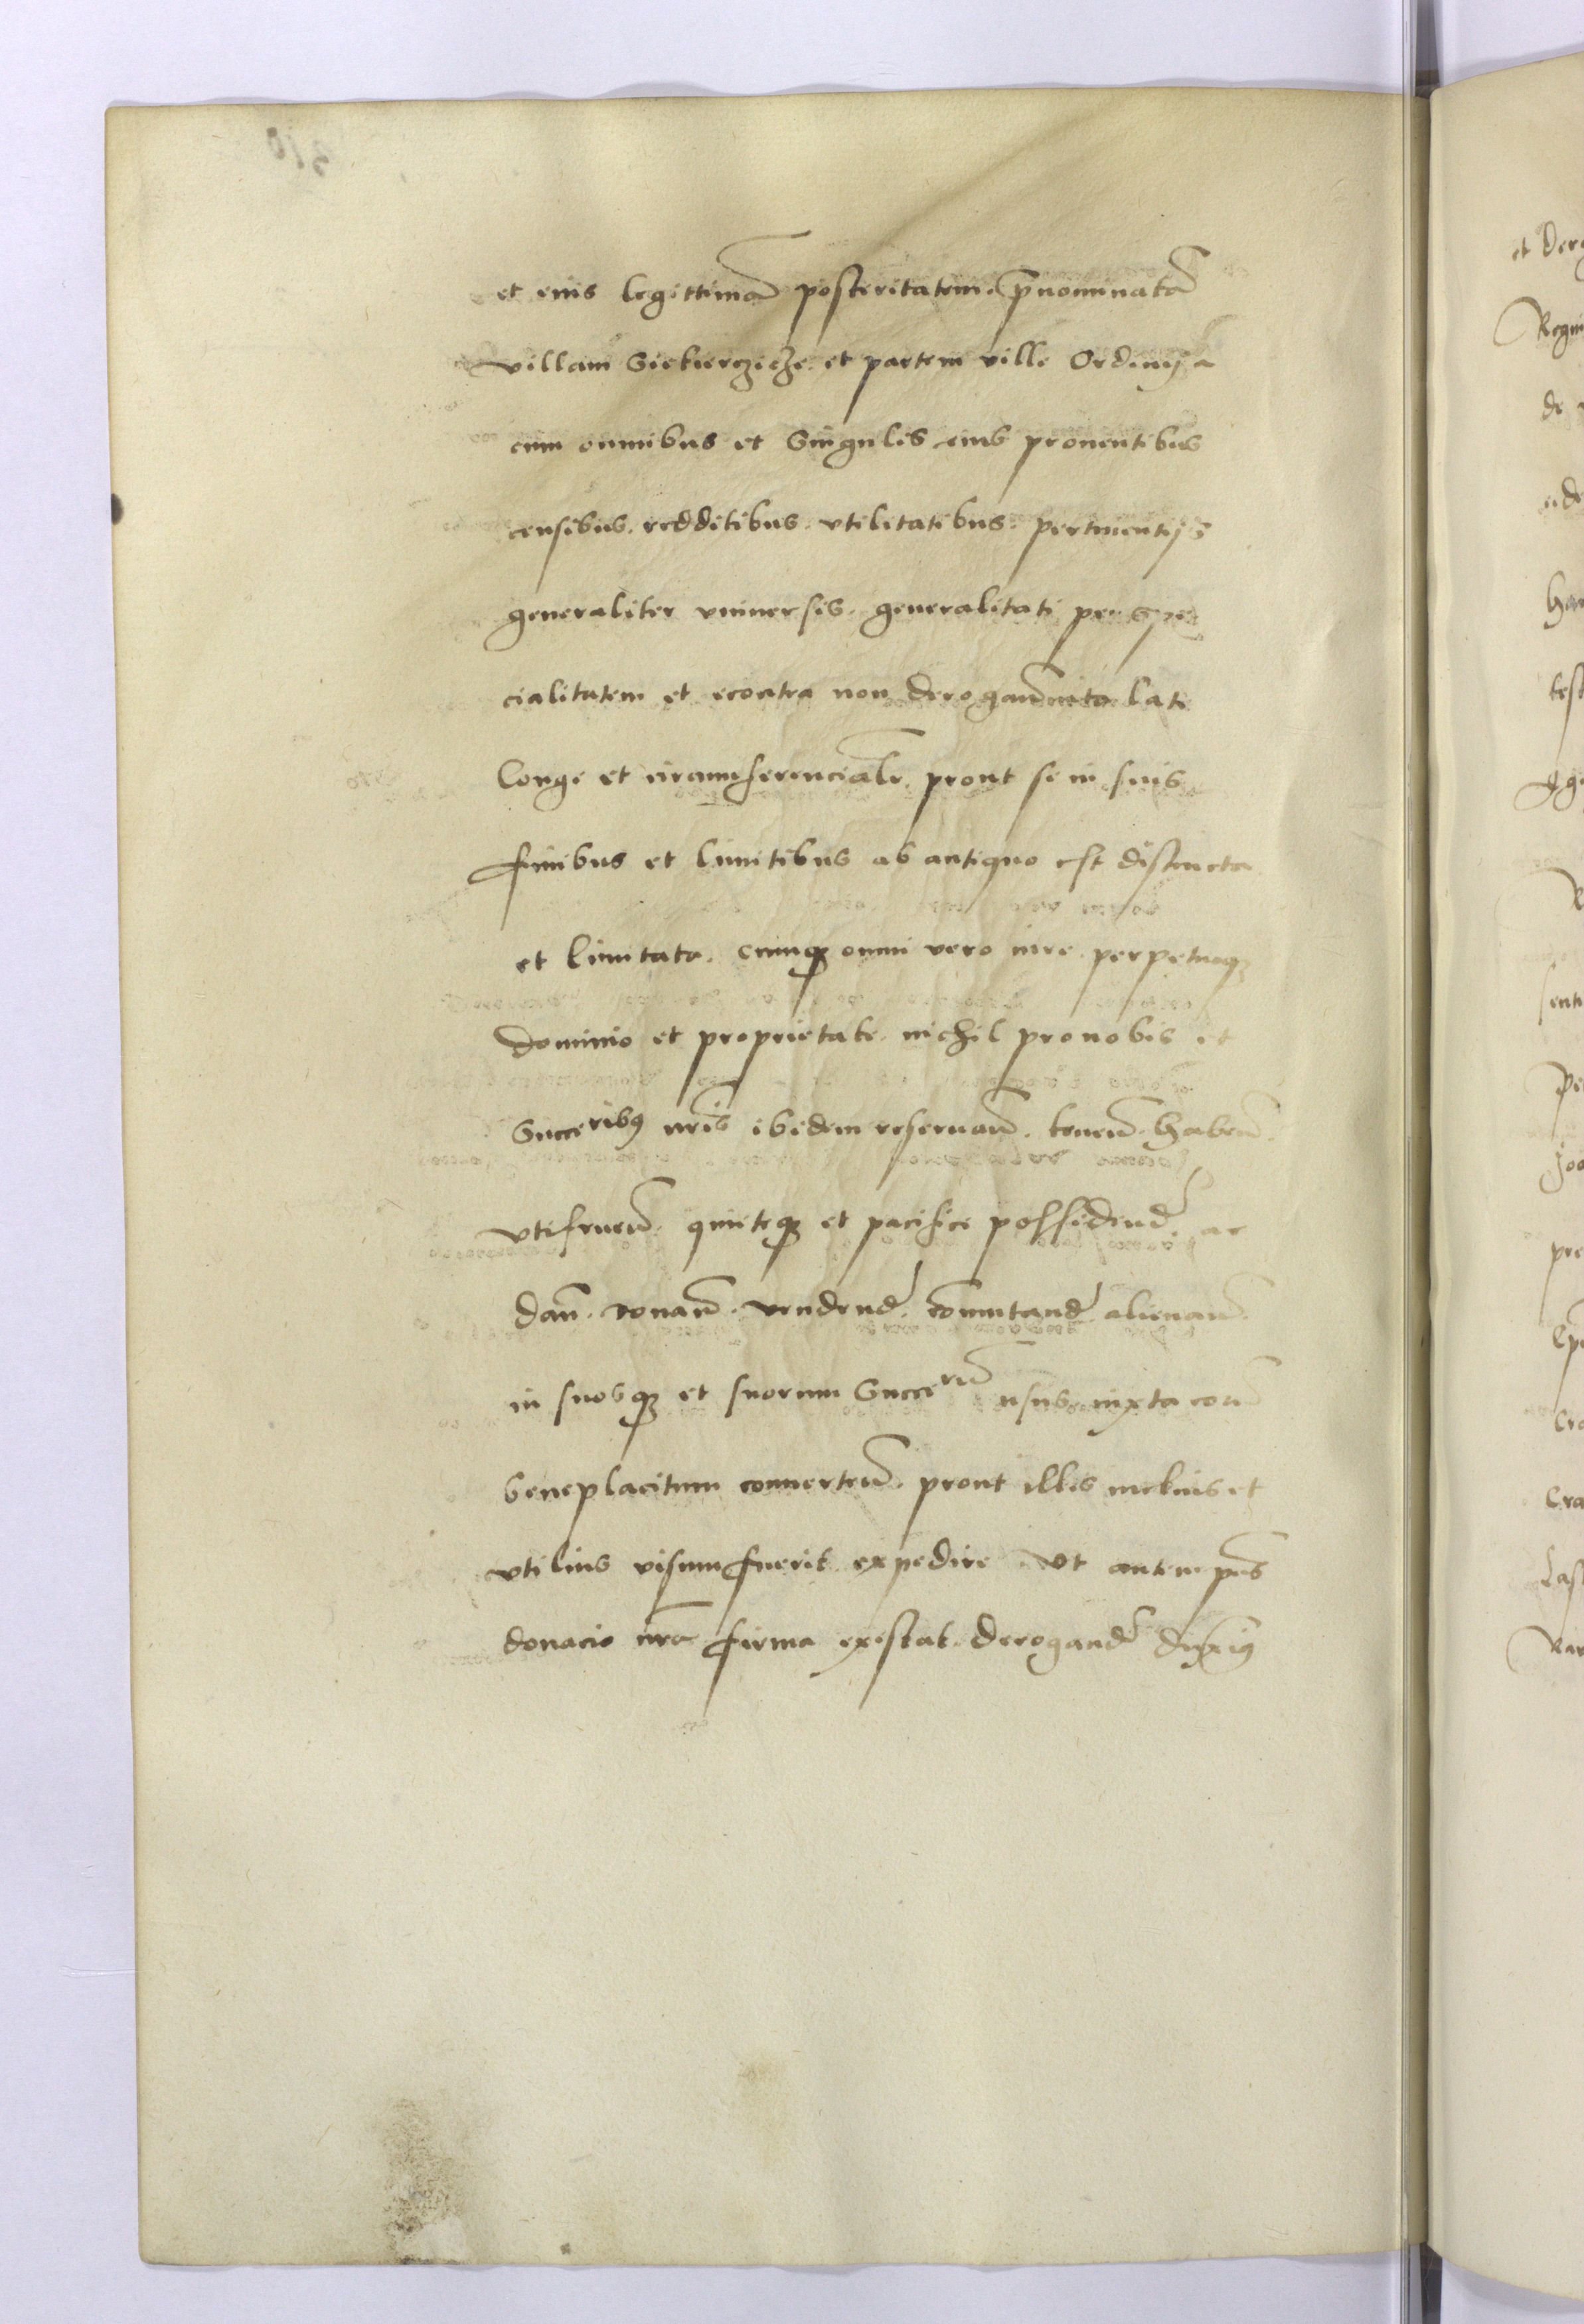 et eius legittimā posteritatem. p̄nominatā
villam Siekierczicze et partem ville Ordinij a
cum omnibus et Singulis eius prouentibus
censibus. redditibus. vtilitatibus. pertinentijs
generaliter vniuersis. generalitati per spe
cialitatem et econtra non derogan̄ ita late
longe et circumferencialr̄ prout se in suis
finibus et limitibus ab antiquo est distincta
et limitata. cumqȝ omni vero iure perpetuoqȝ
dominio et proprietate. nichil pro nobis et
Succeribꝯ nr̄is ibidem reseruan̄. tenen̄. haben̄.
vtifruen̄. quieteqȝ et pacifice possidend̄. ac
dan̄. donan̄. vendend̄. com̄utand̄. alienan̄.
in suosqȝ et suorum Succerū usus iuxta eorū
beneplacitum conuerten̄. prout illis melius et
vtilius visum fuerit expedire Vt autem pn̄s
donacio nr̄a firma existat. derogand̄
et
Regni
de